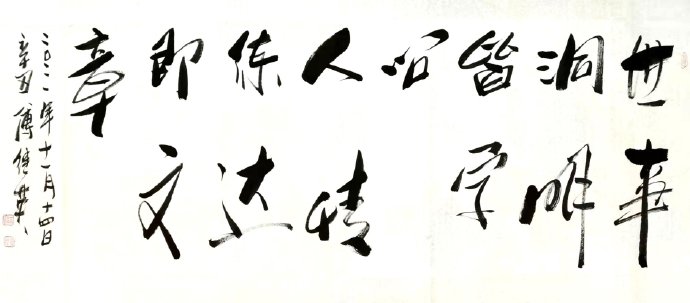 世事
洞明
皆学
问
人情
练达
即文
章
二〇二一年十一月十四日
辛丑傅继英